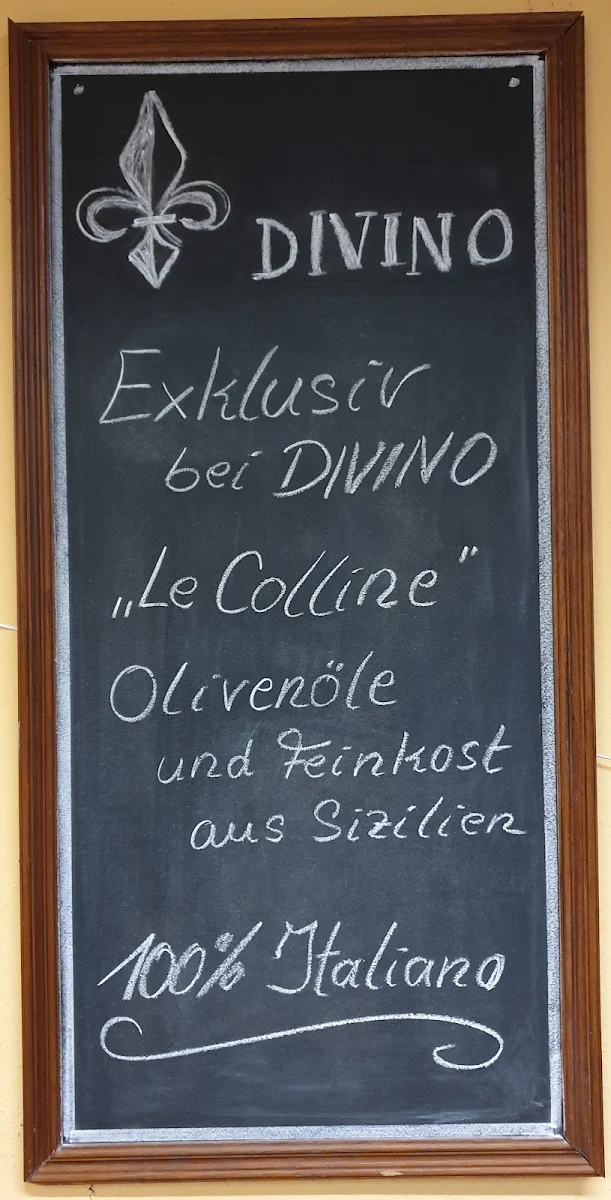 DIVINO
Exklusiv
bei DIVINO
„Le Colline"
Olivenöle
und Feinkost
aus Sizilien
100% Italiano